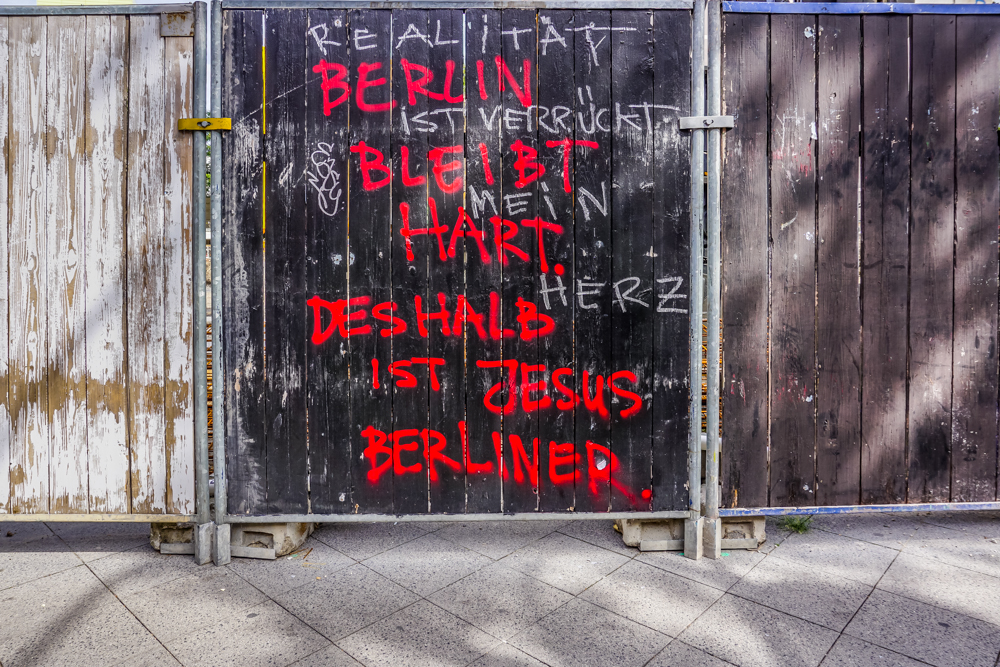 REALITÄT
BERLIN
IST VERRÜCKT
BLEIBT
MEIN
HART.
HERZ
DESHALB
IST JESUS
BERLINER.